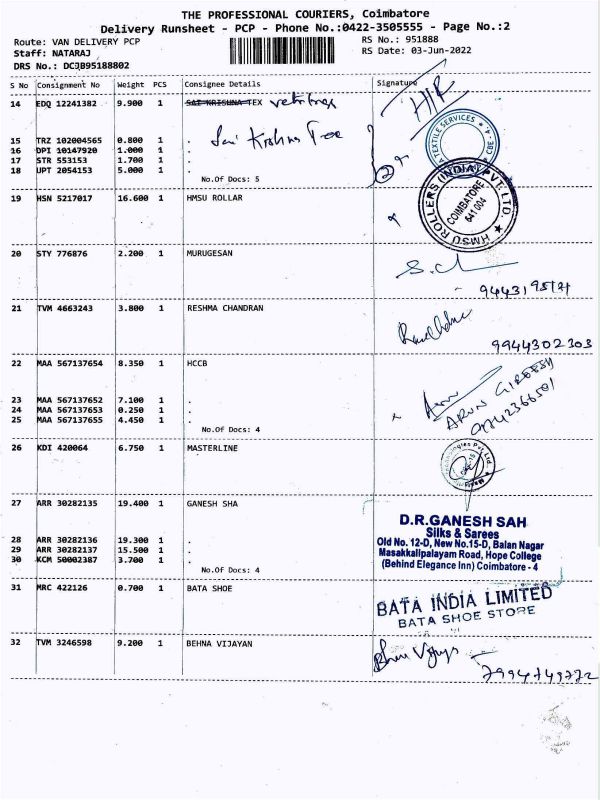 THE PROFESSIONAL COURIERS, Coimbatore
Delivery Runsheet - PCP - Phone No.:0422-3505555 - Page No.:2
Route: VAN DELIVERY PCP RS No.: 951888
Staff: NATARAJ RS Date: 03-Jun-2022
DRS No.: DCJB95188802
S No Consignment No Weight PCS Consignee Details Signature
14 EDQ 12241382 9.900 1 SAI KRISHNA TEX
Sai Krishna Tex
15 TRZ 102004565 0.800 1 .
16 DPI 10147920 1.000 1 .
17 STR 553153 1.700 1 .
18 UPT 2054153 5.000 1 .
No.Of Docs: 5
TEXTILE SERVICES
CBE - 4
19 HSN 5217017 16.600 1 HMSU ROLLAR
HMSU ROLLERS (INDIA) PVT. LTD.
COIMBATORE
641 004
20 STY 776876 2.200 1 MURUGESAN
21 TVM 4663243 3.800 1 RESHMA CHANDRAN
9944302303
22 MAA 567137654 8.350 1 HCCB
23 MAA 567137652 7.100 1 .
24 MAA 567137653 0.250 1 .
25 MAA 567137655 4.450 1 .
No.Of Docs: 4
ARUN GIREESH
26 KDI 420064 6.750 1 MASTERLINE
27 ARR 30282135 19.400 1 GANESH SHA
28 ARR 30282136 19.300 1 .
29 ARR 30282137 15.500 1 .
30 KCM 50002387 3.700 1 .
No.Of Docs: 4
D.R.GANESH SAH
Silks & Sarees
Old No. 12-D, New No.15-D, Balan Nagar
Masakkalipalayam Road, Hope College
(Behind Elegance Inn) Coimbatore - 4
31 MRC 422126 0.700 1 BATA SHOE
BATA INDIA LIMITED
BATA SHOE STORE
32 TVM 3246598 9.200 1 BEHNA VIJAYAN
7994749772